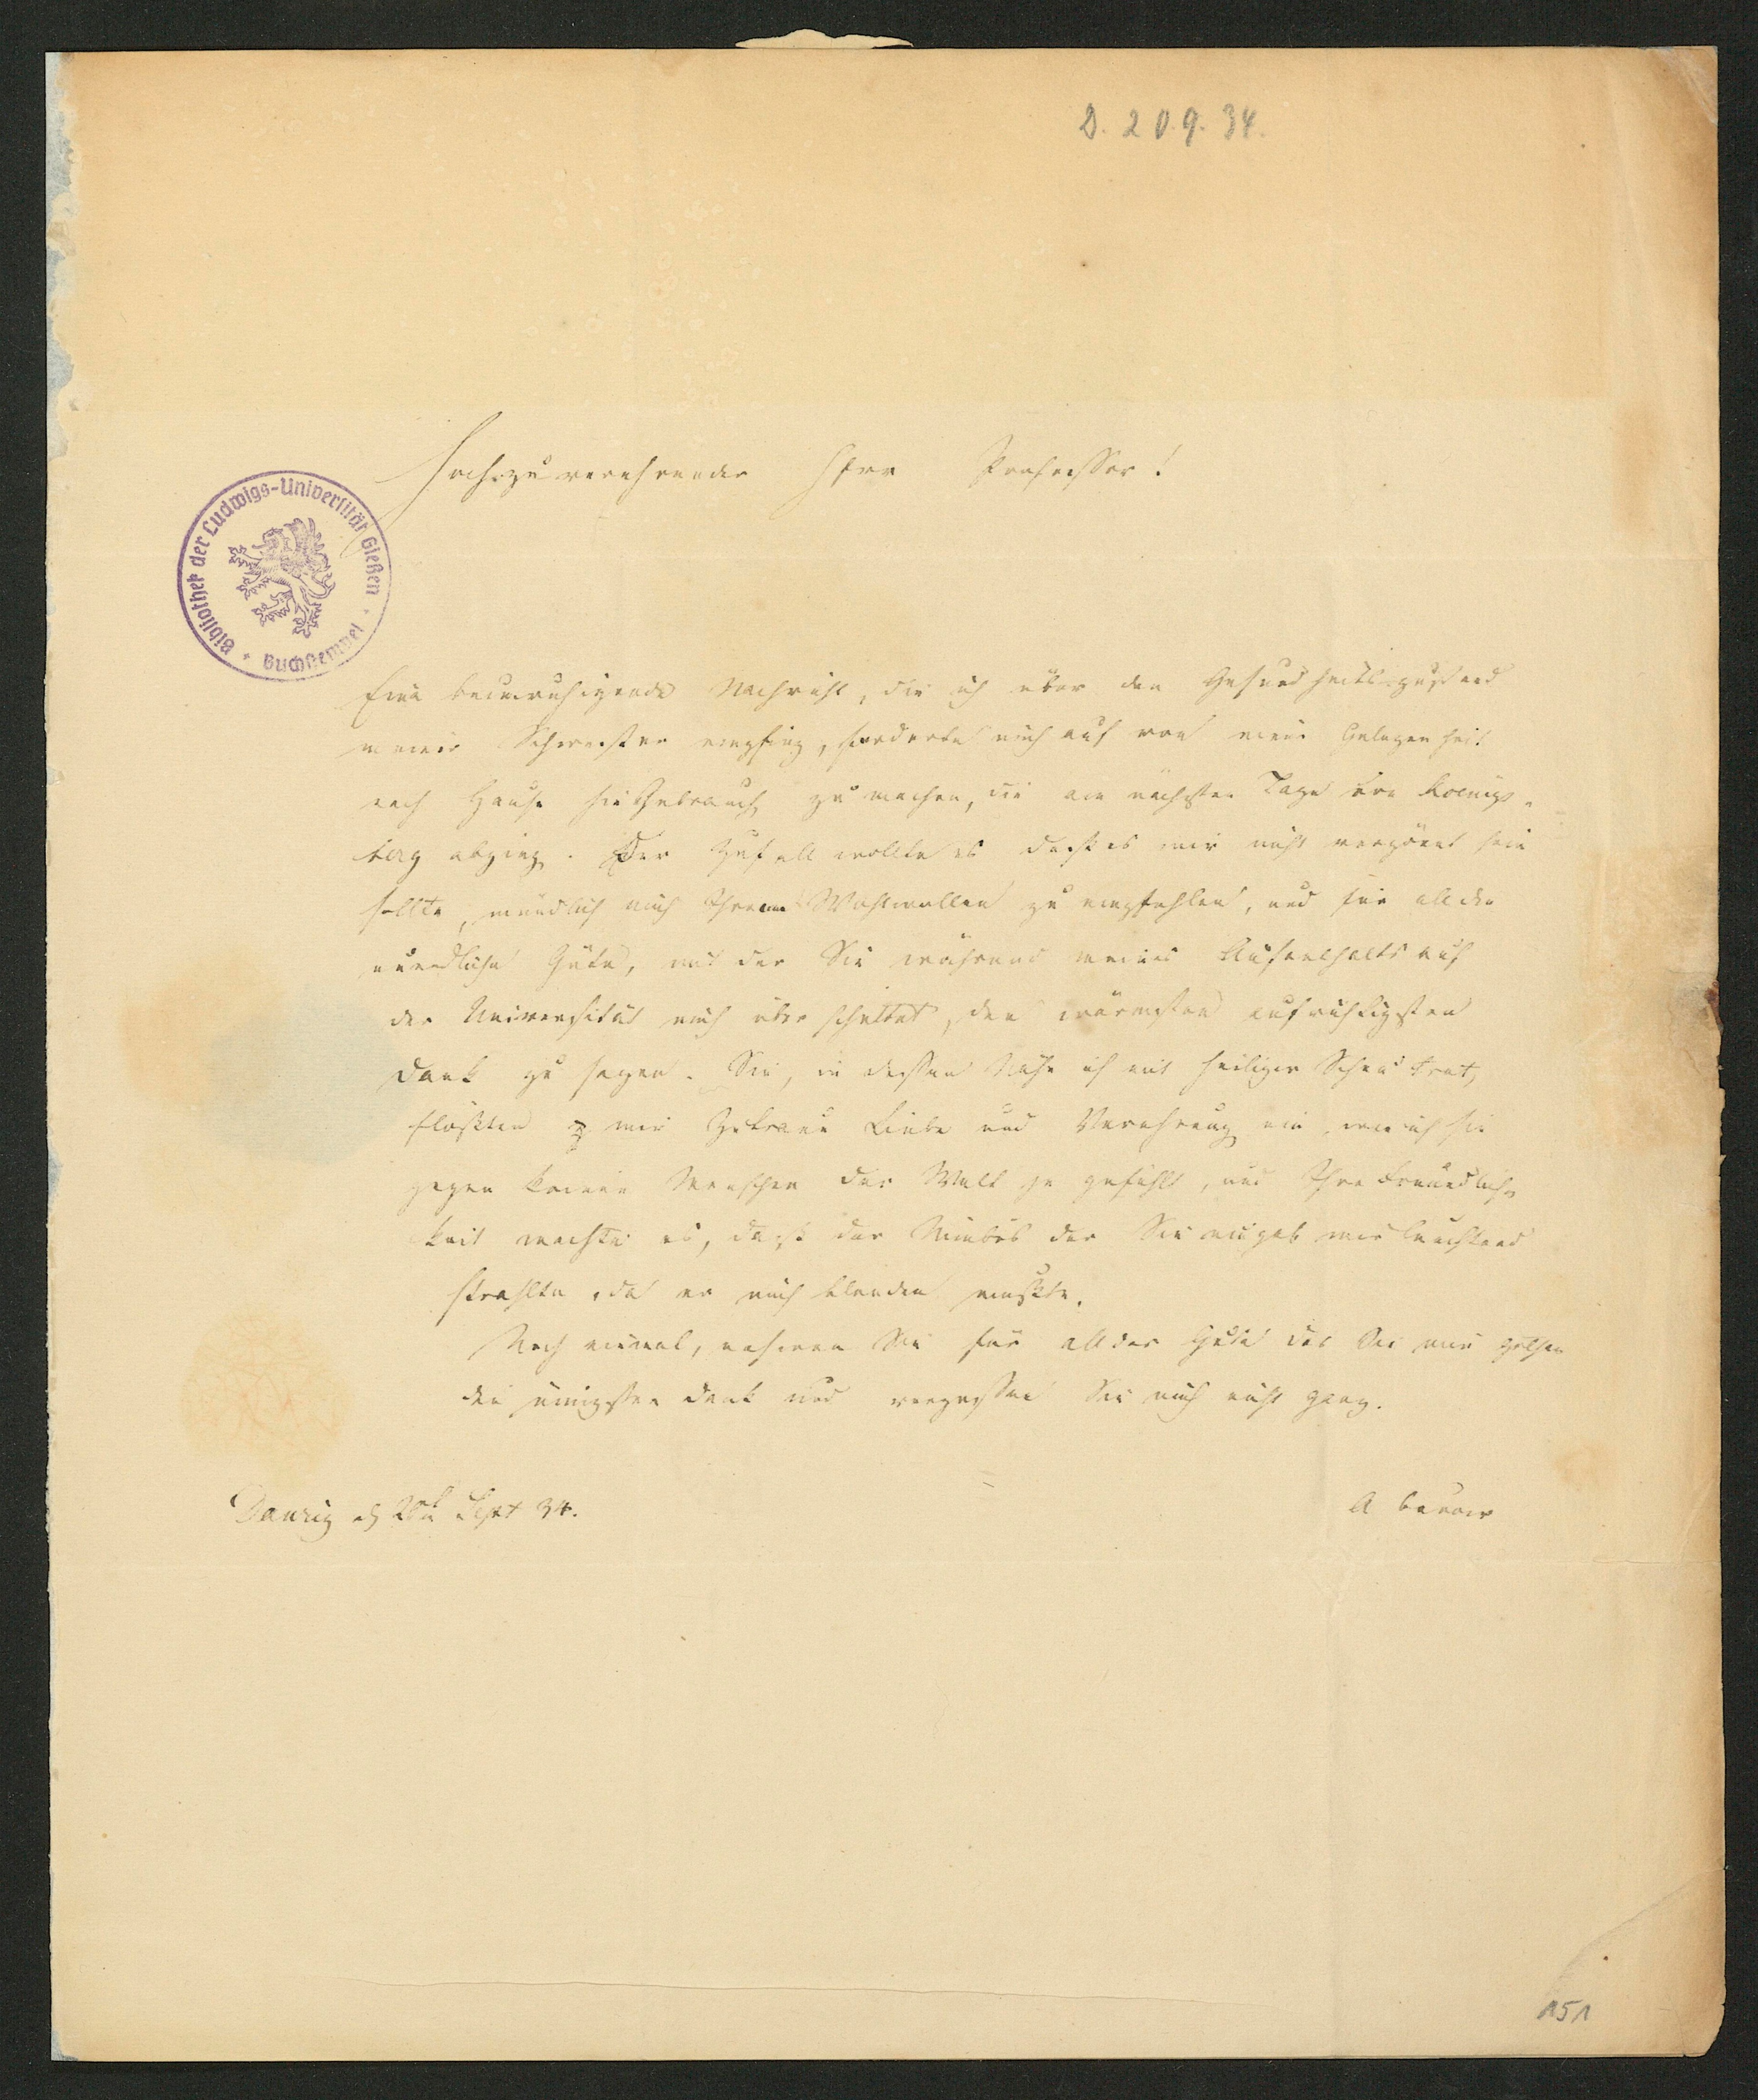 D. 20.9.34.
Hochzuverehrender Herr Professor!
Bibliothek der Ludwigs-Universität Gießen * Buchstempel *
Eine beunruhigende Nachricht, die ich über den Gesundheitszustand
meiner Schwester empfing, forderte mich auf von einer Gelegenheit
nach Hause hin Gebrauch zu machen, die am nächsten Tage von Koenigs-
berg abging. Der Zufall wollte es daß es mir nicht vergönnt sein
sollte, mündlich mich Ihrem Wohlwollen zu empfehlen, und für all die
unendliche Güte, mit der Sie während meines Aufenthalts auf
der Universität mich überschüttet, den wärmsten aufrichtigsten
Dank zu sagen. Sie, in dessen Nähe ich mit heiliger Scheu trat,
flößten mir Zutraun Liebe und Verehrung ein, wie ich sie
gegen keinen Menschen der Welt je gefühlt, und Ihre Freundlich-
keit machte es, daß der Nimbus der Sie umgab mir leuchtend
strahlte, da er mich blenden mußte.
Noch einmal, nehmen Sie für all das Gute das Sie mir gethan
den innigsten Dank und vergessen Sie mich nicht ganz.
Danzig d 20t Sept 34.
A
151